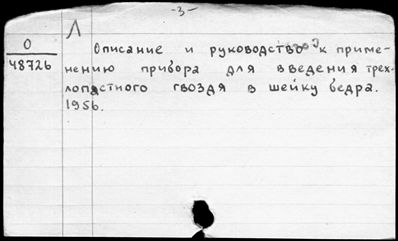 -3-
Л
О
48726
Описание и руководство к приме-
нению прибора для введения трех-
лопастного гвоздя в шейку бедра.
1956.